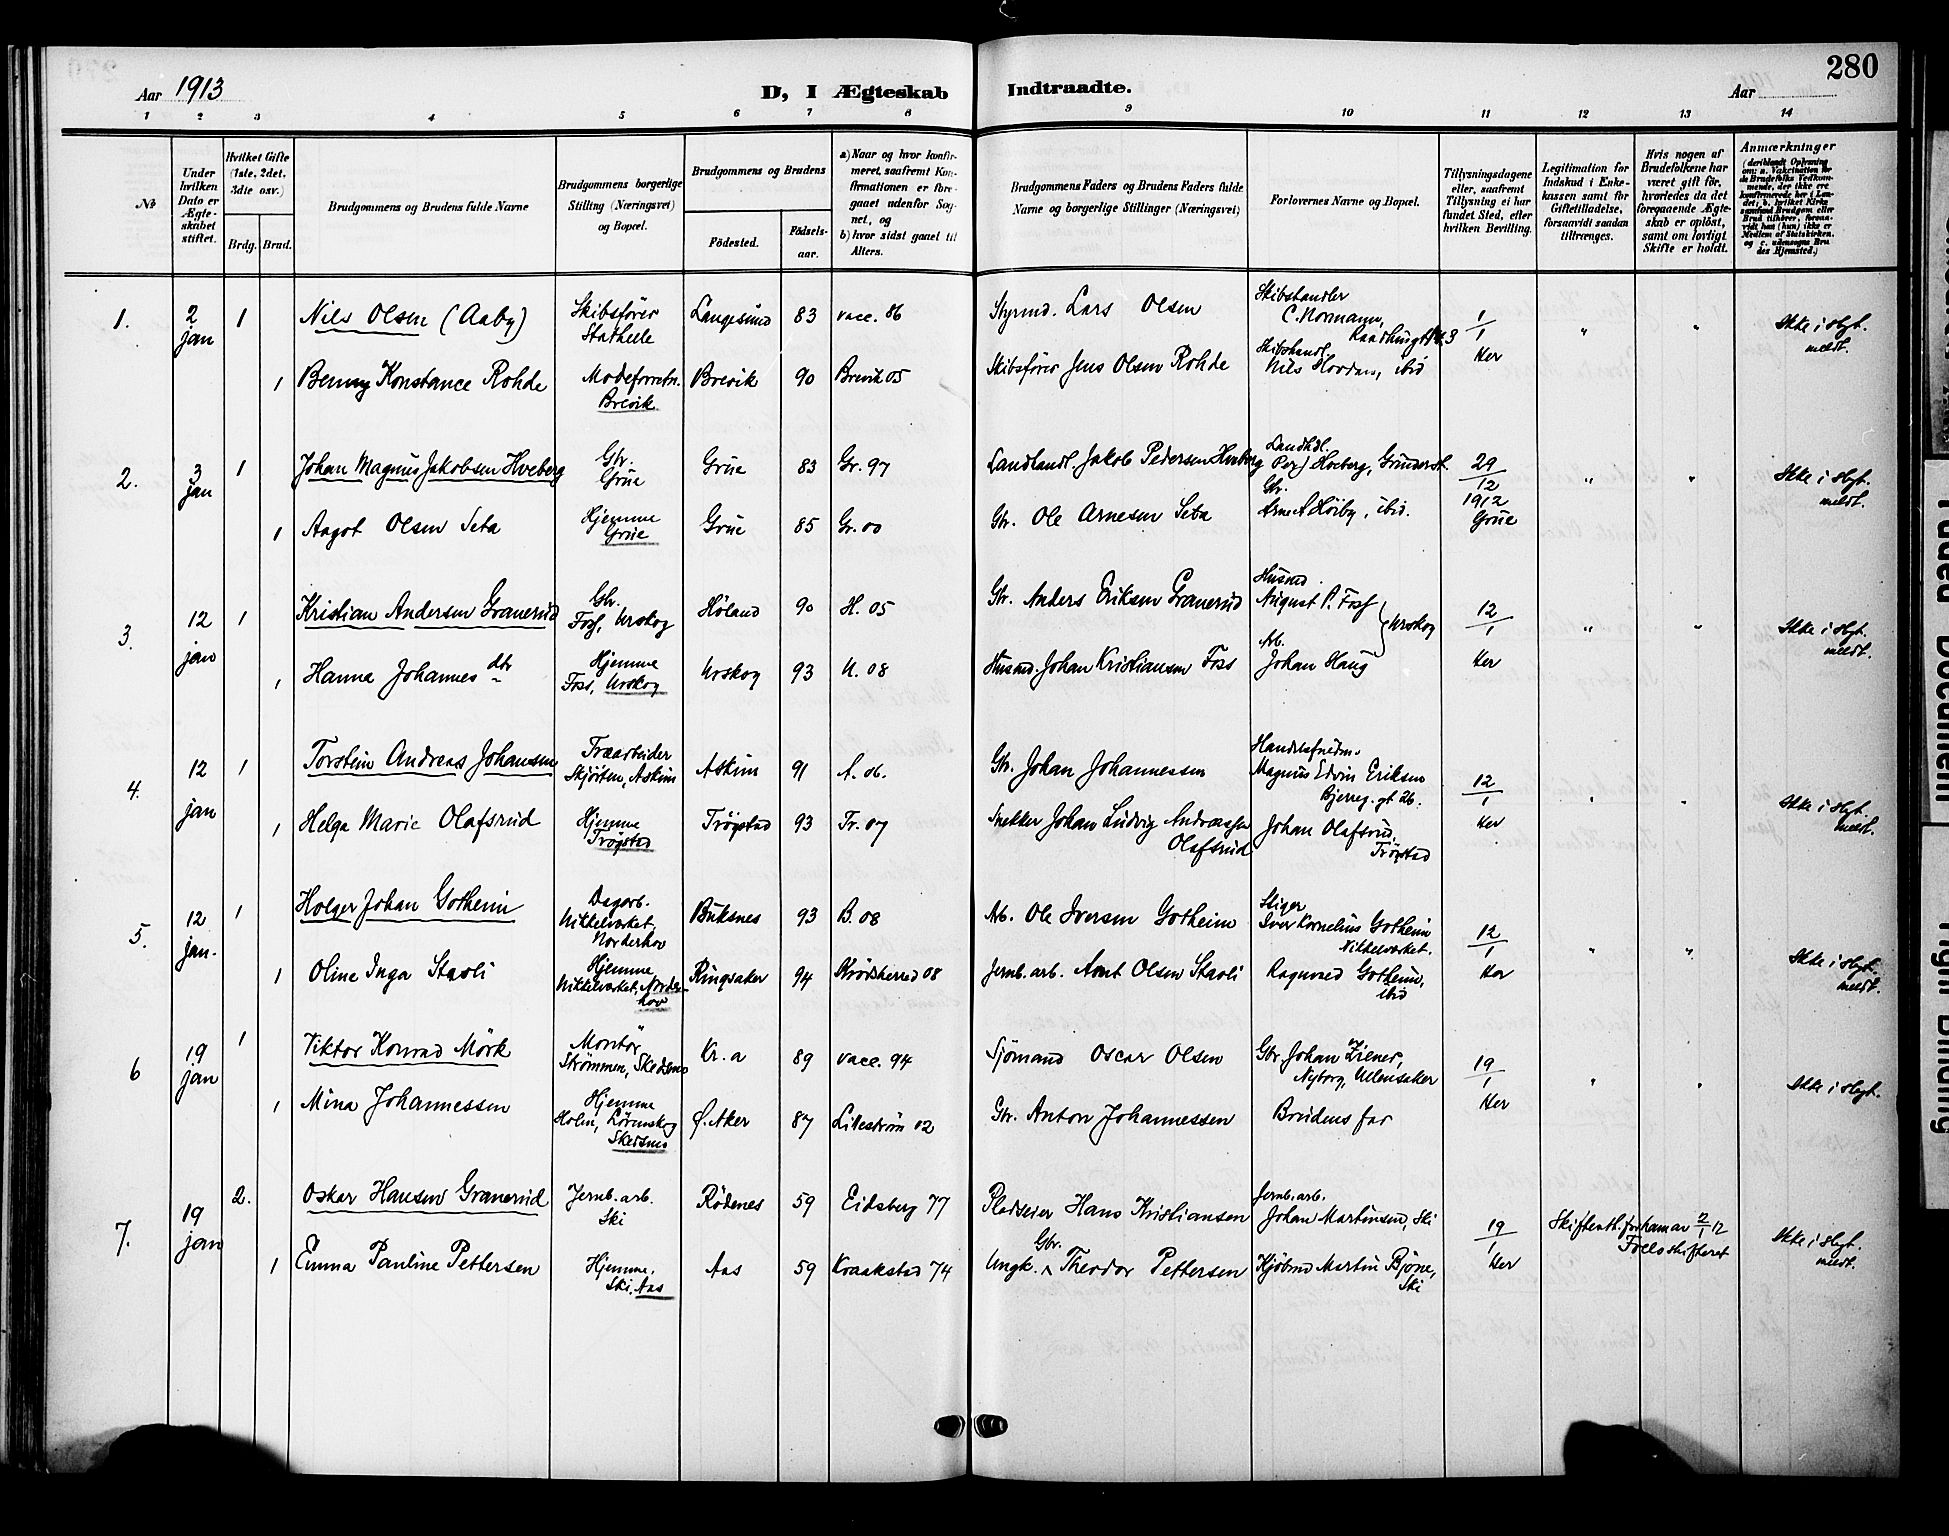 280
Aar 1913
D, I Ægteskab Indtraadte.
Aar
1 2 3 4 5 6 7 8 9 10 11 12 13 14
No
Under hvilken Dato er Ægteskabet stiftet.
Hvilket Gifte (1ste, 2det, 3die osv.)
Brdg. Brud.
Brudgommens og Brudens fulde Navne
Brudgommens borgerlige Stilling (Næringsvei) og Bopæl.
Brudgommens og Brudens
Fødested. Fødselsaar.
a) Naar og hvor konfirmeret, saafremt Konfirmationen er foregaaet udenfor Sognet, og
b) hvor sidst gaaet til Alters.
Brudgommens Faders og Brudens Faders fulde Navne og borgerlige Stillinger (Næringsvei)
Forlovernes Navne og Bopæl.
Tillysningsdagene eller, saafremt Tillysning ei har fundet Sted, efter hvilken Bevilling.
Legitimation for Indskud i Enkekassen samt for Giftetilladelse, forsaavidt saadan tiltrænges.
Hvis nogen af Brudefolkene har været gift før, hvorledes da det foregaaende Ægteskab er opløst, samt om lovligt Skifte er holdt.
Anmærkninger
(deriblandt Oplysning om: a. Vakcination for de Brudefolks Vedkommende, der ikke ere konfirmerede her i Landet; b. hvilket Kirkesamfund Brudgom eller Brud tilhører, forsaavidt han (hun) ikke er Medlem af Statskirken. og c. udensogns Brudes Hjemsted.)
1. 2 jan 1 Nils Olsen (Aaby) Skibsfører Stathelle Langesund 83 vacc. 86 Styrmd. Lars Olsen Skibshandler C. Normann, Raadhusgt. 3 1/1 Her " " Ikke i slgt. meldt.
1 Benny Konstance Rohde Modeforretn. Brevik Brevik 90 Brevik 05 Skibsfører Jens Olsen Rohde Skibshandl. Nils Hordan, ibid
2. 3 jan 1 Johan Magnus Jakobsen Hveberg Gbr. Grue Grue 83 Gr. 97 Landhandl. Jakob Pedersen Hveberg Landhdl. Per J Hveberg, Gruderst. 29/12 1912 Grue " " Ikke i slgt. meldt.
1 Aagot Olsen Seta Hjemme Grue Grue 85 Gr. 00 Gbr. Ole Arnesen Seta Gbr. Arne A Høiby, ibid.
3. 12 jan 1 Kristian Andersen Granerud Gbr. Foss, Urskog Høland 90 H. 05 Gbr. Anders Eriksen Granerud Husmd. August P. Foss } Urskog 12/1 Her " " Ikke i slgt. meldt.
1 Hanna Johannes dtr Hjemme Foss, Urskog Urskog 93 U. 08 Husmd. Johan Kristiansen Foss Arb. Johan Haug
4. 12 jan 1 Torstein Andreas Johansen Træarbeider Skjørten, Askim Askim 91 A. 06. Gbr. Johan Johannessen Handelsfuldm. Magnus Edvin Eriksen Bjerreg.gt 26. 12/1 Her " " Ikke i slgt. meldt.
1 Helga Marie Olafsrud Hjemme Trøgstad Trøgstad 93 Tr. 07 Snekker Johan Ludvig Andreassen Olafsrud Johan Olafsrud, Trøgstad
5. 12 jan. 1 Holger Johan Gotheim Dagarb. Nikkelverket, Norderhov Buksnes 93 B. 08 Arb. Ole Iversen Gotheim Stiger Iver Kornelius Gotheim Nikkelværket. 12/1 Her " " Ikke i slgt. meldt.
1 Oline Inga Stavli Hjemme Nikkelværket, Norderhov Ringsaker 94 Krødsherred 08 Jernb. arb. Arnt Olsen Stavli Ragnvald Gotheim, ibid
6 19 jan 1 Viktor Konrad Mörk Montør Strømmen, Skedsmo Kr.a 89 vacc. 94 Sjømand Oscar Olsen Gbr. Johan Ziener, Nyborg, Ullensaker 19/1 Her " " Ikke i slgt.
1 Mina Johannessen Hjemme Holm, Lørenskog Skedsmo Ø. Aker 87 Lillestrøm 02 Gbr. Anton Johannessen Brudens far
7. 19 jan 2. Oskar Hansen Granerud Jernb. arb. Ski Rødenes 59 Eidsberg 77 Pladseier Hans Kristiansen Jernb. arb. Johan Martinsen, Ski 19/1 Her Skifteatt. fra hamar 2/1 12 Fællesskifteret Ikke i slgt. meldt.
1 Emma Pauline Pettersen Hjemme, Ski, Aas Aas 59 Kraakstad 74 Ungk. Gbr. Theodor Pettersen Kjøbmd Martin Bjøne, Ski
Tight Binding